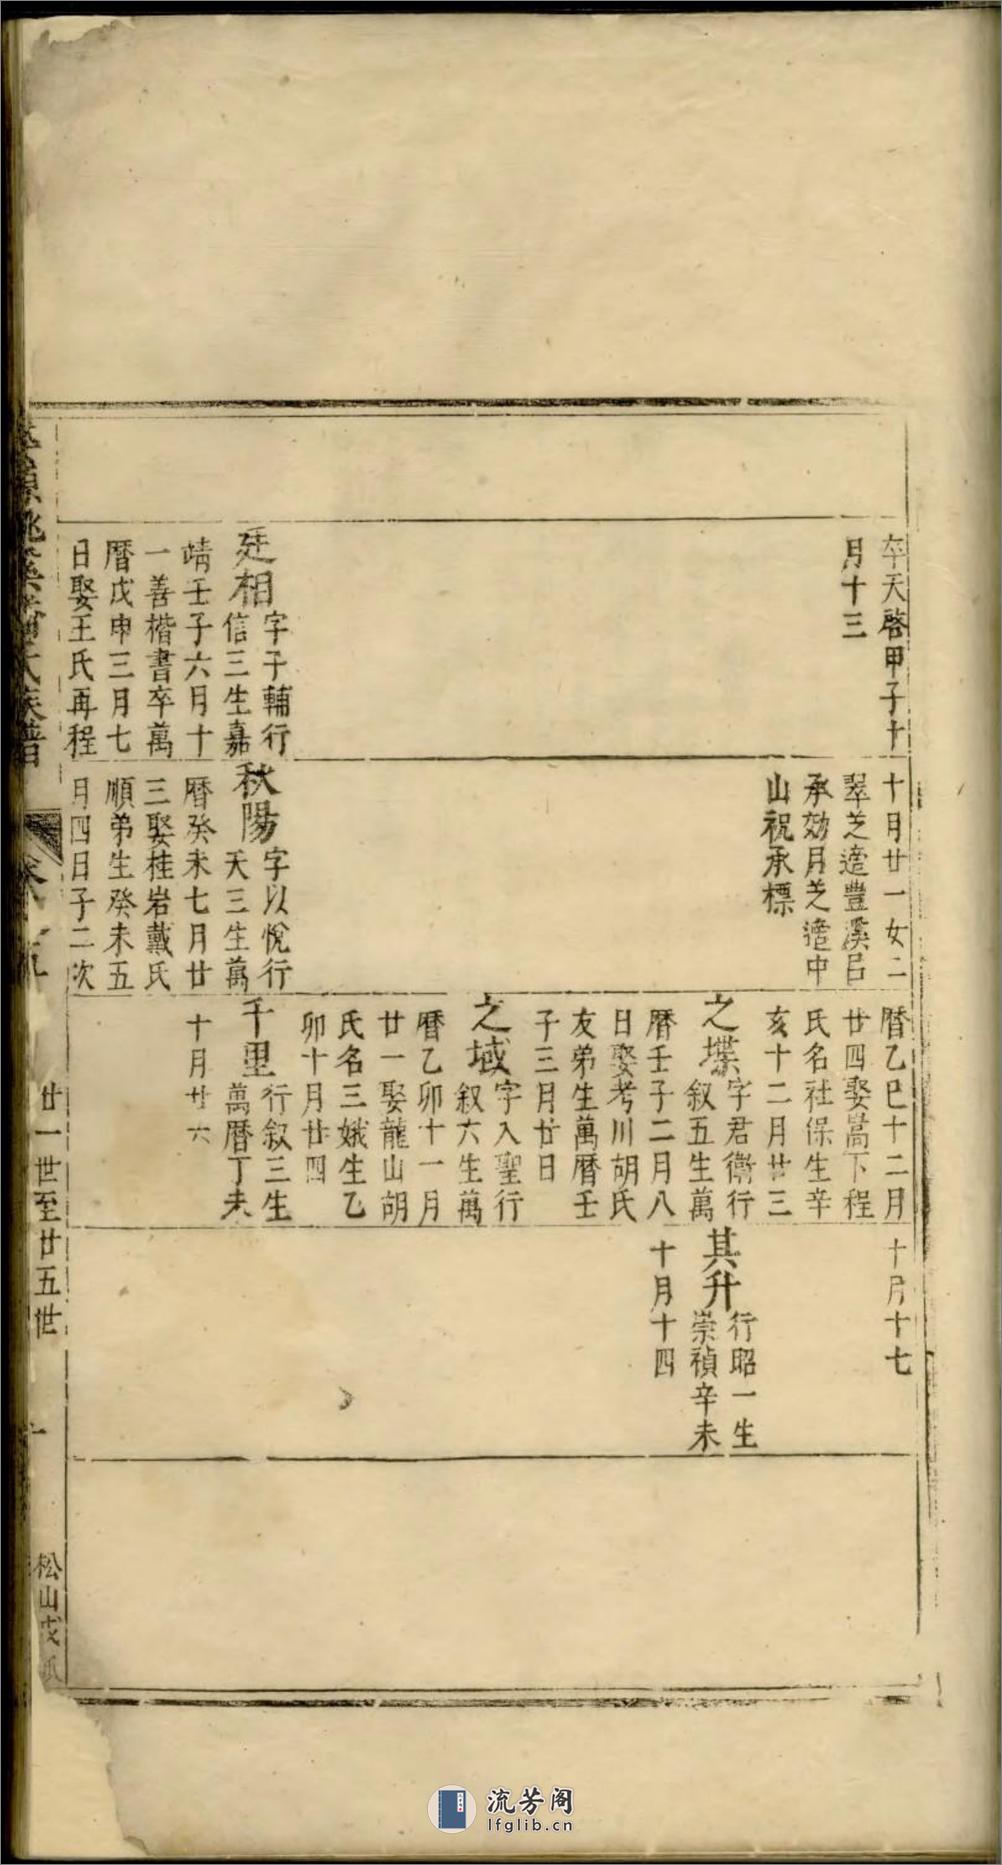 卒天啓甲子十
月十三
廷相
字子輔行
信三生嘉
靖壬子六月十
一善楷書卒萬
曆戊申三月七
日娶王氏再程
十月廿一女二
翠芝適豐溪呂
承効月芝適中
山祝承標
秋陽
字以悅行
天三生萬
曆癸未七月廿
三娶桂岩戴氏
順弟生癸未五
月四日子二次
曆乙巳十二月
廿四娶嵩下程
氏名社保生辛
亥十二月廿三
之墣
字君衞行
叙五生萬
曆壬子二月八
日娶考川胡氏
友弟生萬曆壬
子三月廿日
之域
字入聖行
叙六生萬
曆乙卯十一月
廿一娶龍山胡
氏名三娥生乙
卯十月廿四
千里
行叙三生
萬曆丁未
十月廿六
十月十七
其升
行昭一生
崇禎辛未
十月十四
族譜
廿一世至廿五世
松山
流芳阁
lfglib.cn